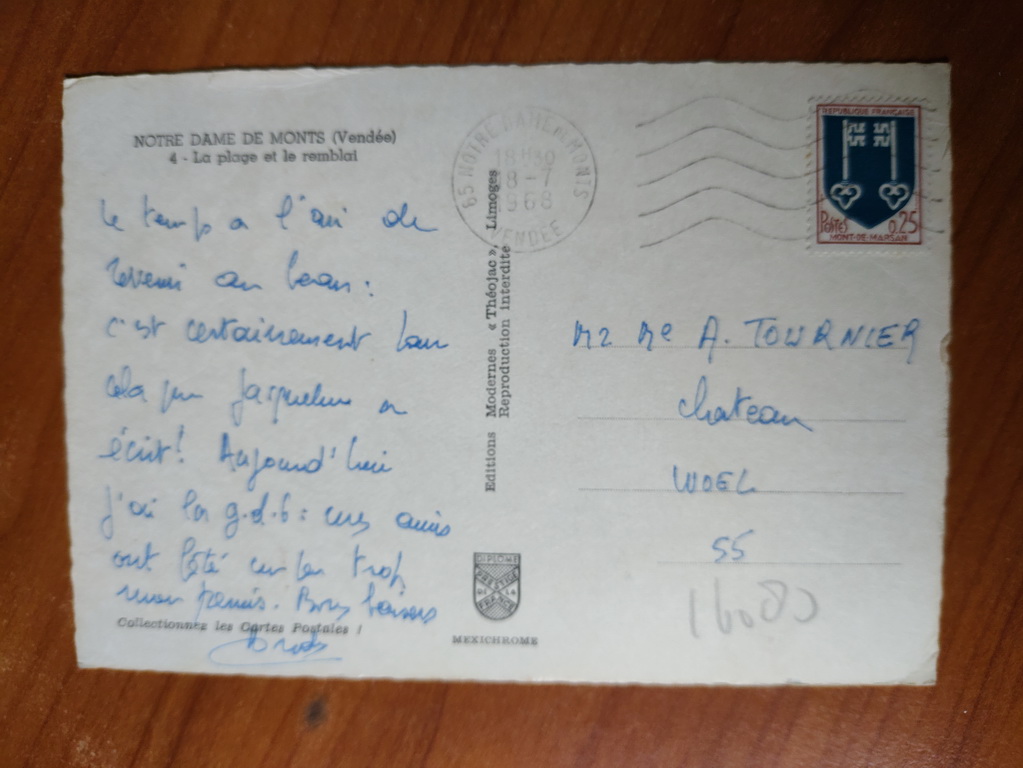 NOTRE DAME DE MONTS (Vendée)
4 - La plage et le remblai
le temps a l'air de
revenir au beau :
c'est certainement
cela que Jacqueline a
écrit! Aujourd'hui
j'ai la g.d.b : mes amis
ont fêté trop
mon permis. Bons baisers
Collectionnez les Cartes Postales !
Editions Modernes « Théojac », Limoges
Reproduction interdite
DIPLOME
PRESTIGE
DE LA
FRANCE
MEXICHROME
85 NOTRE DAME DE MONTS
18H30
8-7
1968
VENDÉE
REPUBLIQUE FRANÇAISE
Postes 0,25
MONT-DE-MARSAN
Mr Me A. TOURNIER
Chateau
WOEL
55
16080